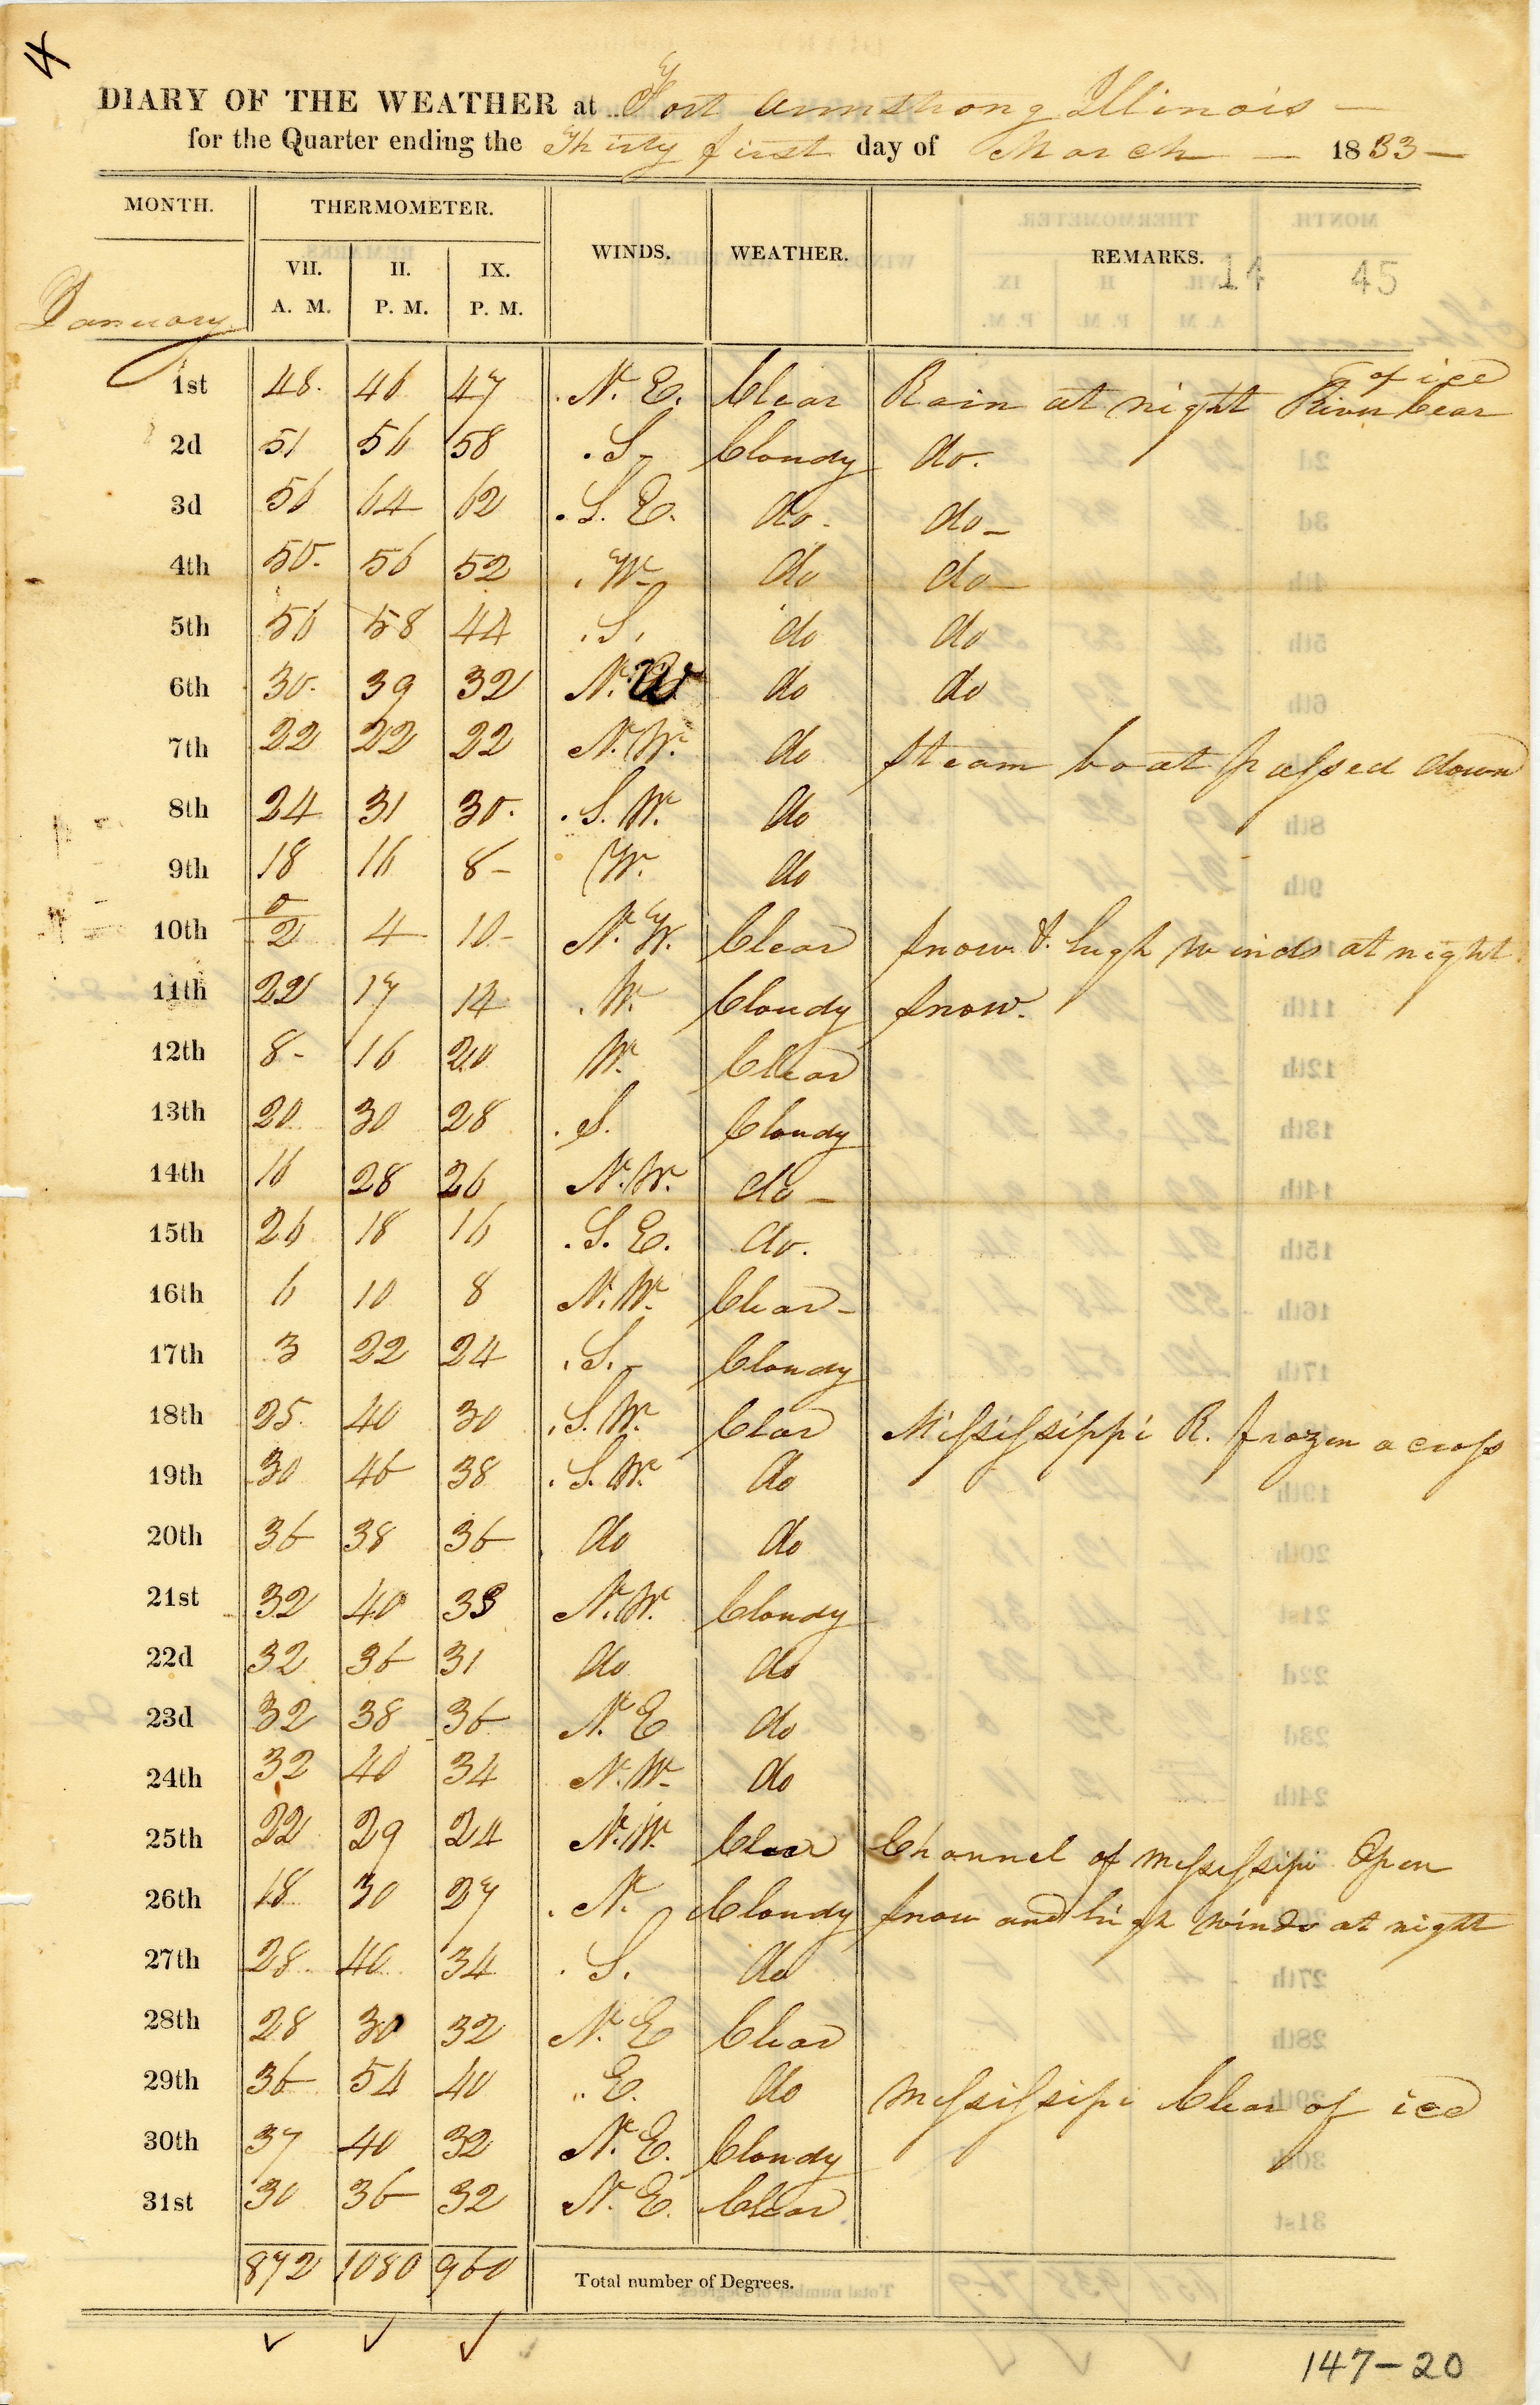 4
DIARY OF THE WEATHER at Fort Armstrong Illinois —
for the Quarter ending the Thirty first day of March — 1833 —
MONTH. THERMOMETER. WINDS. WEATHER. REMARKS.
14 45
VII. A. M. II. P. M. IX. P. M.
January
1st 48. 46 47 N. E. Clear Rain at night River Cear of ice
2d 51 56 58 S Cloudy do.
3d 56 64 62 S. E. do - do -
4th 50. 56 52 W do do -
5th 56 58 44 S. do do
6th 30. 39 32 N. W do do
7th 22 22 22 N. W. do Steam boat passed down
8th 24 31 30. S. W. do
9th 18 16 8 - W. do
10th 0/2 4 10 - N. W. Clear Snow & high winds at night
11th 22 17 14 W. Cloudy Snow.
12th 8 - 16 20 W. Clear
13th 20 30 28 S. Cloudy
14th 16 28 26 N. W. do -
15th 26 18 16 S. E. do.
16th 6 10 8 N. W. Clear -
17th 3 22 24 S. Cloudy
18th 25. 40 30 S. W. Clar Missisippi R. frozen across
19th 30 46 38 S. W. do
20th 36 38 36 do do
21st 32 40 33 N. W. Cloudy
22d 32 36 31 do do
23d 32 38 36 N. E do
24th 32 40 34 N. W. do
25th 22 29 24 N. W. Clear Channel of Messessipi Open
26th 18 30 27 N. Cloudy Snow and high winds at night
27th 28 40 34 S. do
28th 28 30 32 N. E Clear
29th 36 54 40 E. do Messissipi Clear of ice
30th 37 40 32 N. E. Cloudy
31st 30 36 32 N. E. Clear
872 1080 960 Total number of Degrees.
147-20